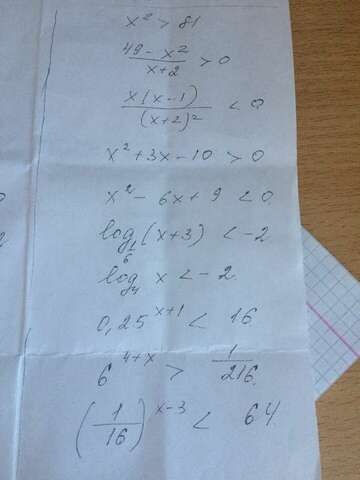 x² > 81
(49 - x²)/(x+2) > 0
x(x-1)/(x+2)² < 0
x² + 3x - 10 > 0
x² - 6x + 9 < 0
log_{1/6} (x+3) < -2
log₄ x < -2.
0,25^{x+1} < 16
6^{4+x} > 1/216.
(1/16)^{x-3} < 64